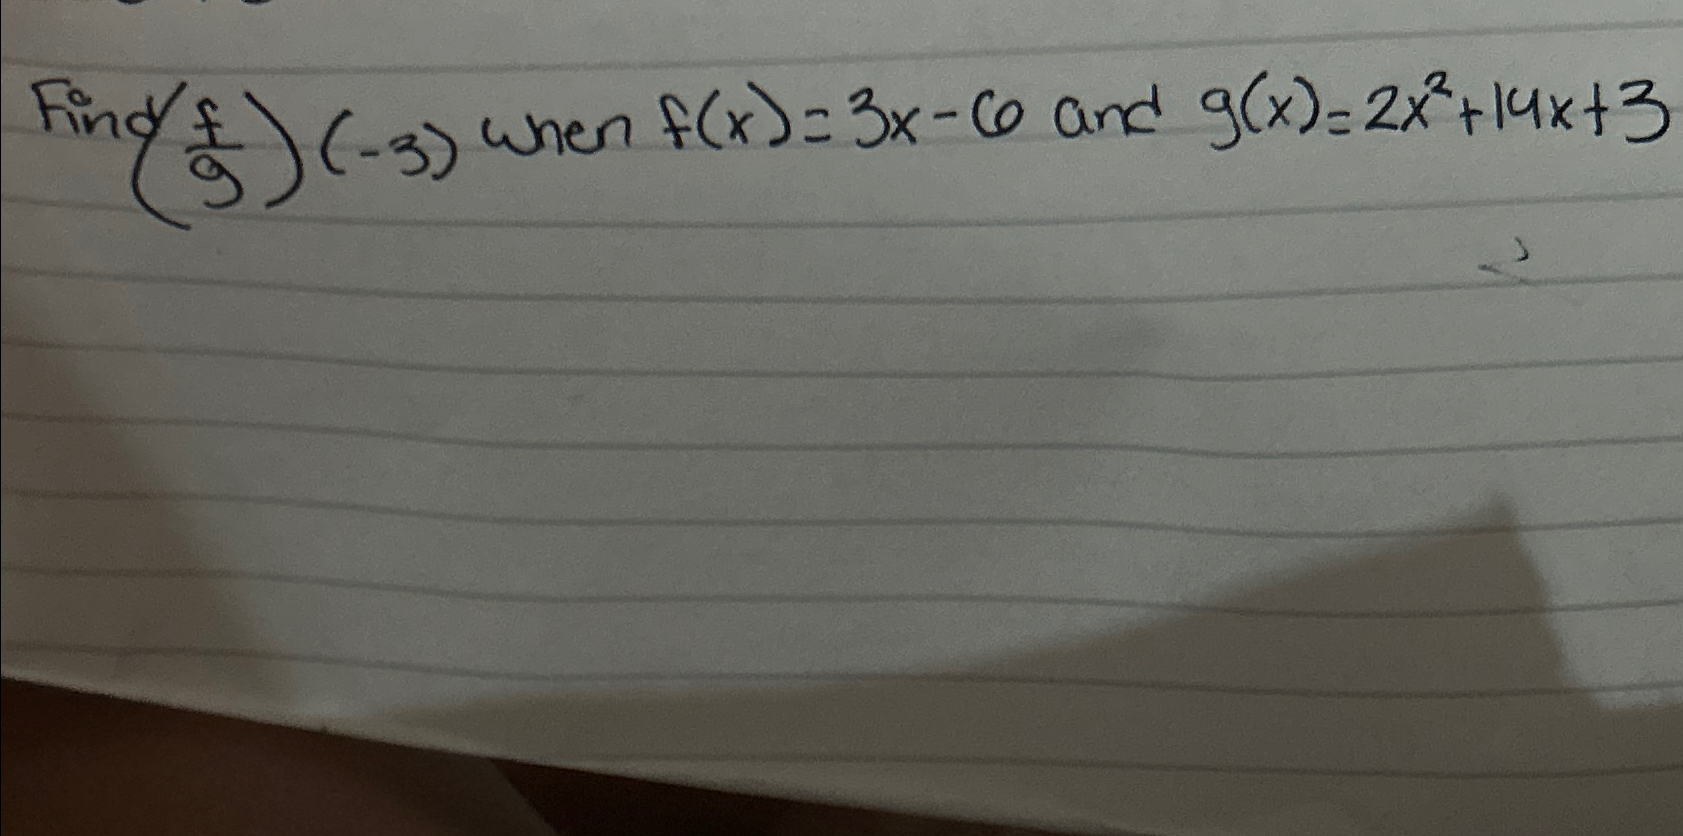 Find (f/g)(-3) when f(x)=3x-6 and g(x)=2x²+14x+3